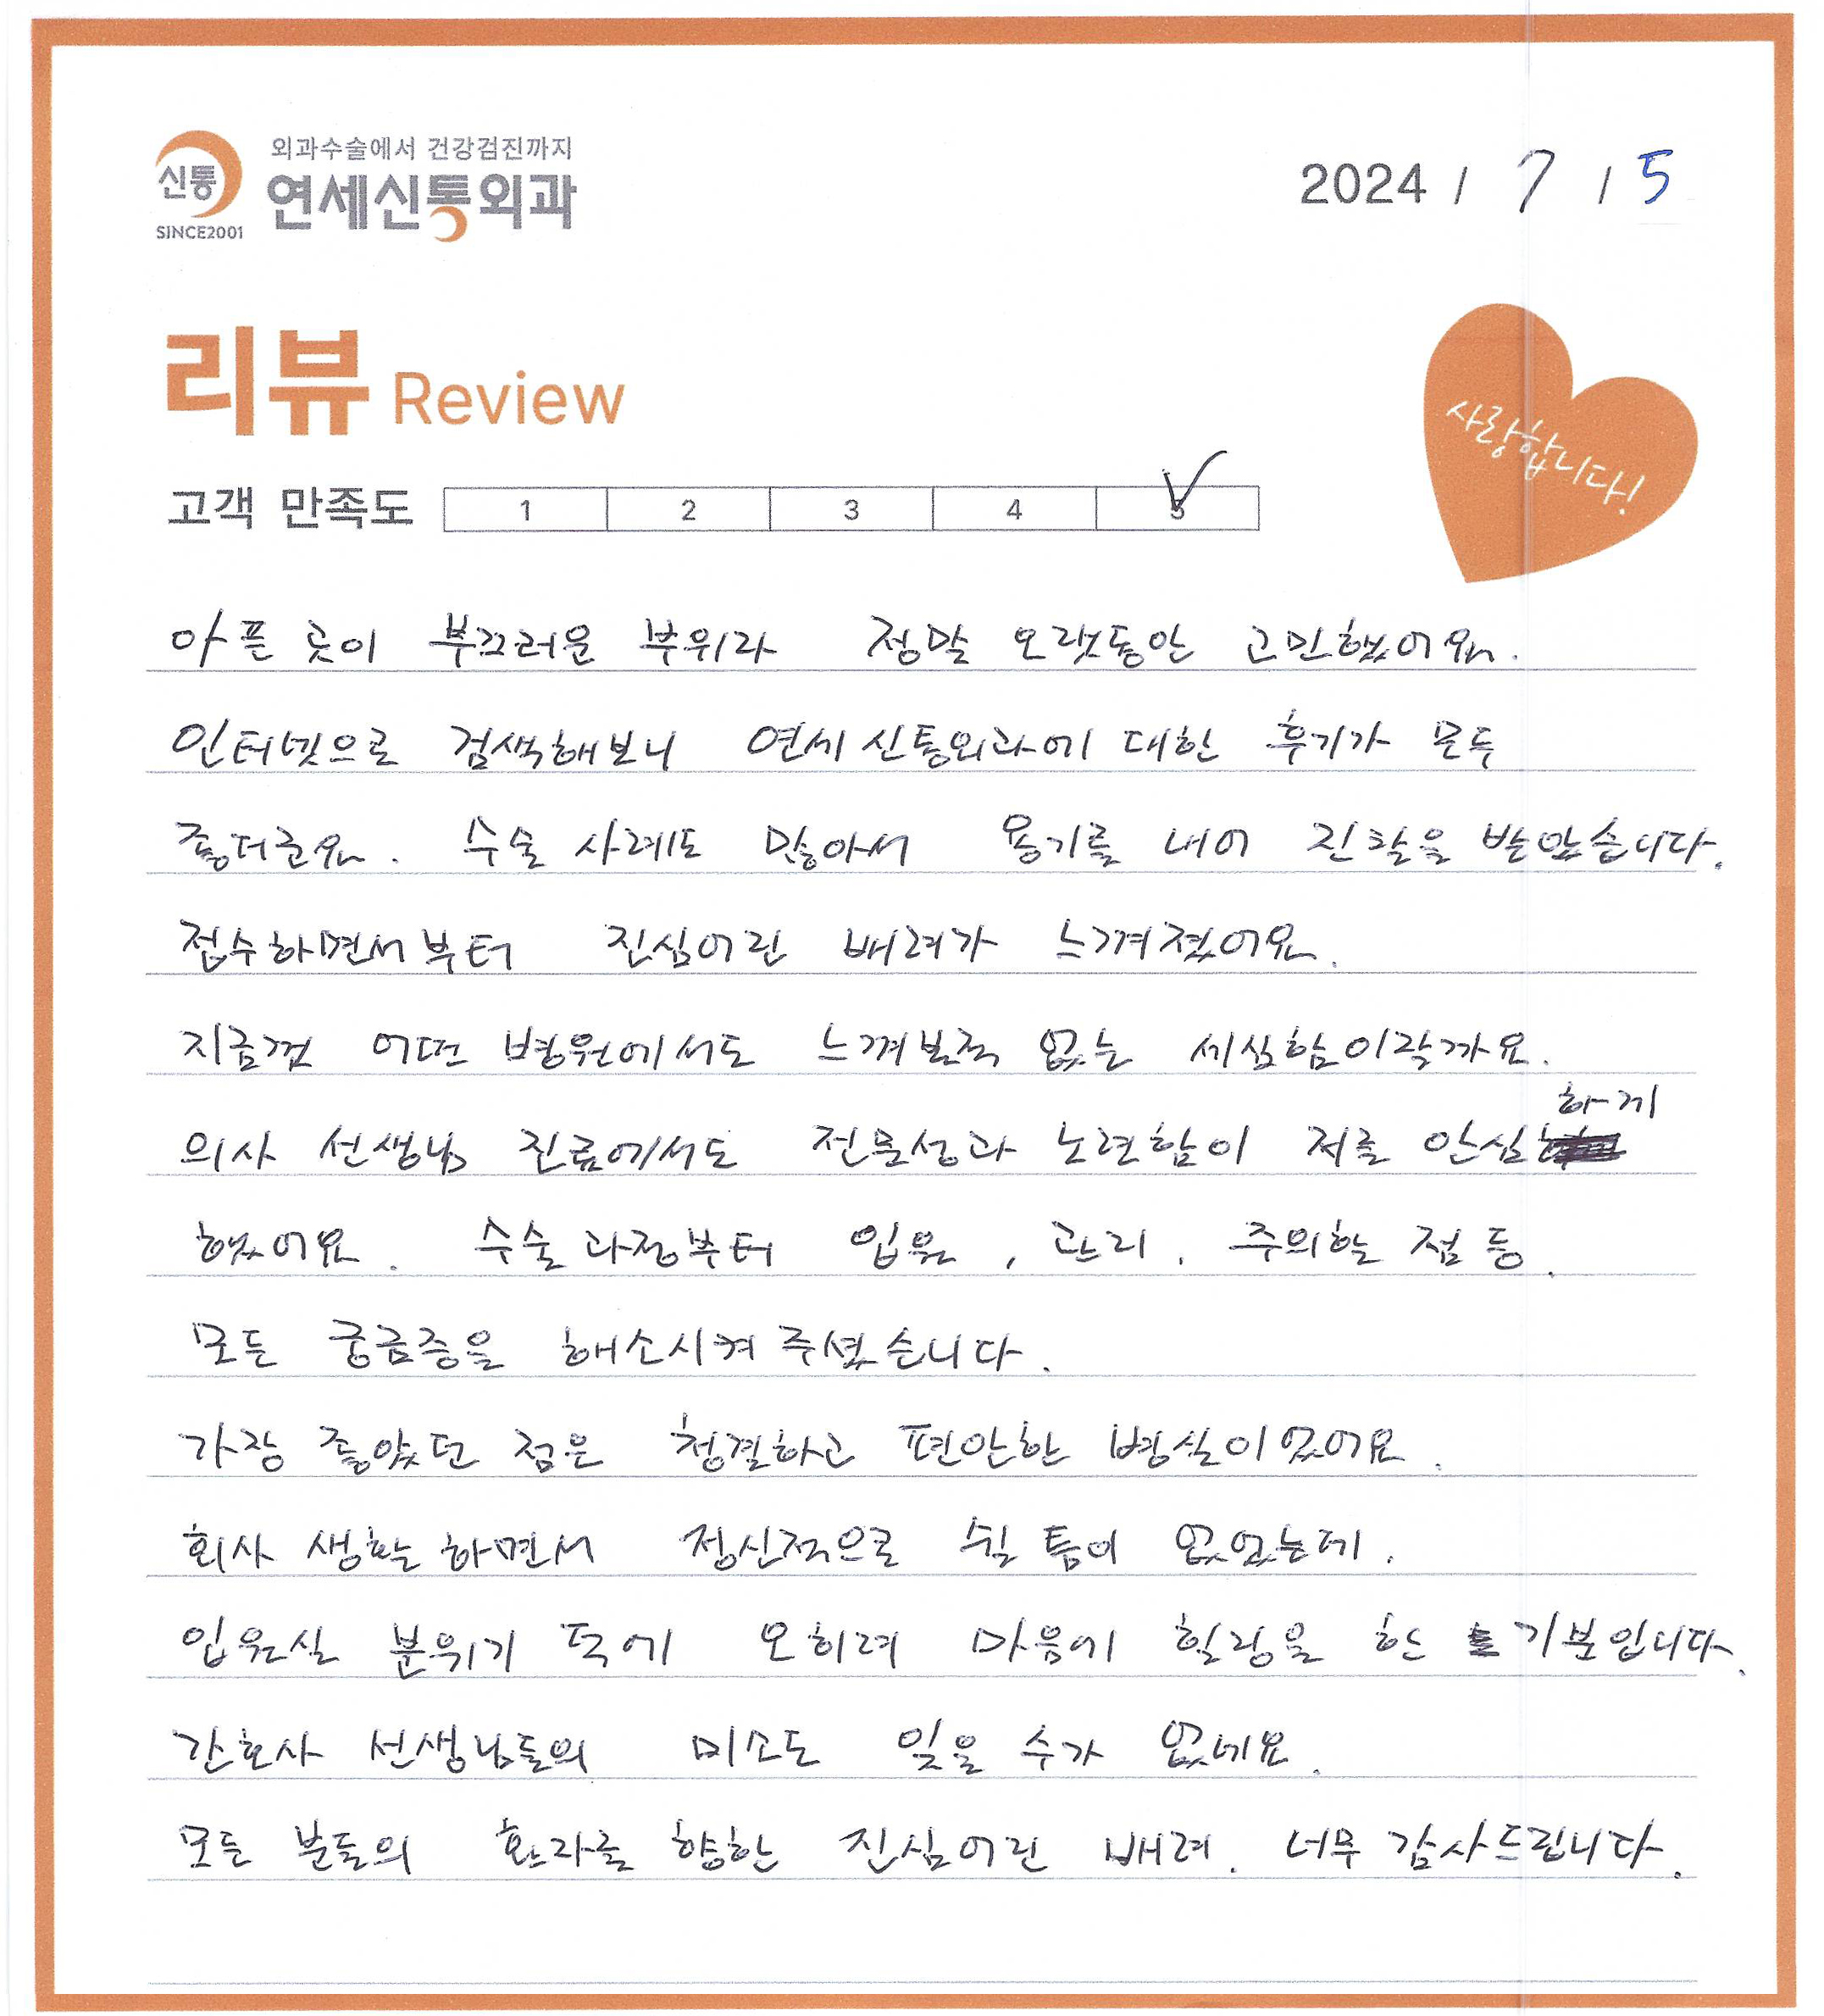 신통
SINCE2001
외과수술에서 건강검진까지
연세신통외과
2024 / 7 / 5
리뷰 Review
사랑합니다!
고객 만족도 1 2 3 4 5
아픈 곳이 부끄러운 부위라 정말 오랫동안 고민했어요.
인터넷으로 검색해보니 연세신통외과에 대한 후기가 모두
좋더군요. 수술 사례도 많아서 용기를 내어 진찰을 받았습니다.
접수하면서부터 진심어린 배려가 느껴졌어요.
지금껏 어떤 병원에서도 느껴본적 없는 세심함이랄까요.
의사 선생님 진료에서도 전문성과 노련함이 저를 안심하게
했어요. 수술과정부터 입원, 관리, 주의할 점 등.
모든 궁금증을 해소시켜 주셨습니다.
가장 좋았던 점은 청결하고 편안한 병실이었어요.
회사 생활하면서 정신적으로 쉴 틈이 없었는데.
입원실 분위기 덕에 오히려 마음에 힐링을 한 기분입니다.
간호사 선생님들의 미소도 잊을 수가 없네요.
모든 분들의 환자를 향한 진심어린 배려. 너무 감사드립니다.